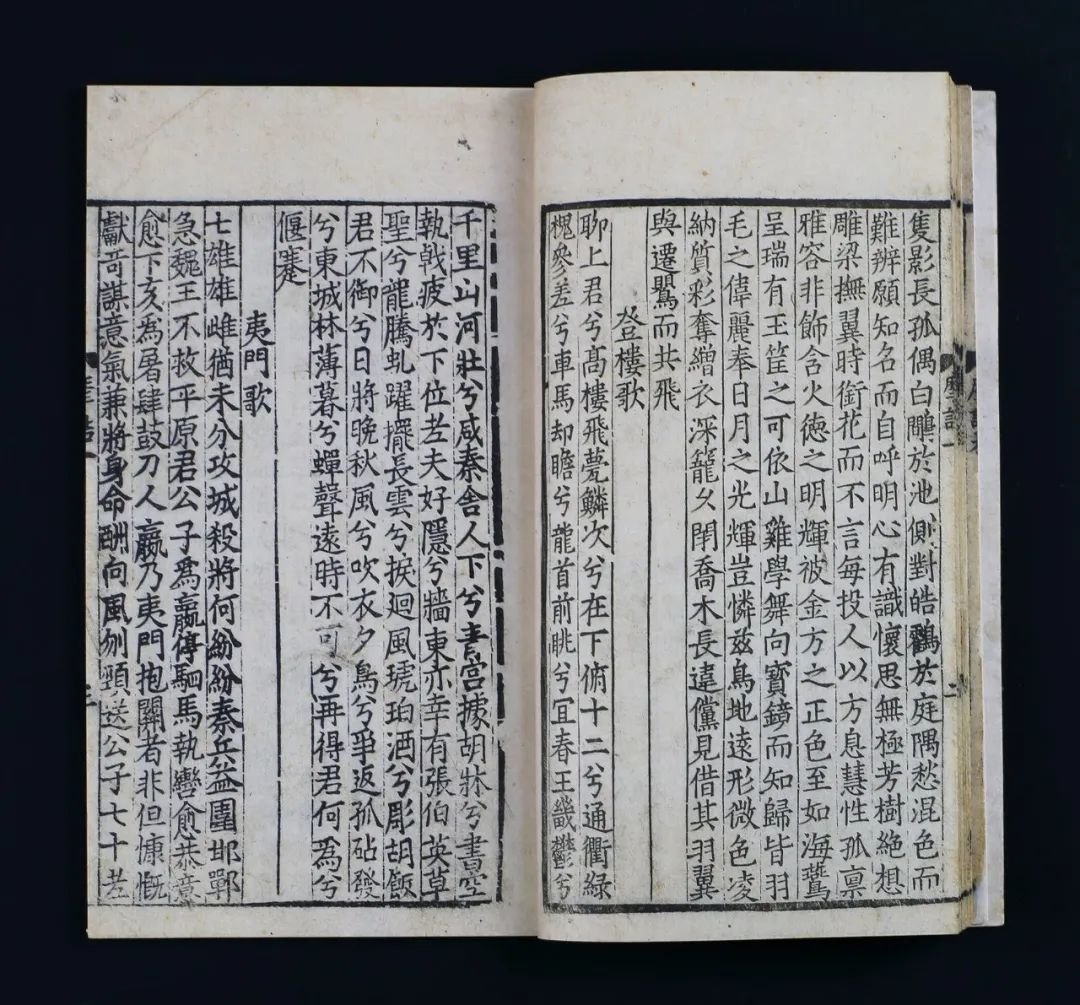 隻影長孤偶白鷳於池側對皓鶴於庭隅愁混色而
難辨願知名而自呼明心有識懷思無極芳樹絶想
雕梁撫翼時銜花而不言每投人以方息慧性孤禀
雅容非飾含火徳之明輝被金方之正色至如海鷰
呈瑞有玉筐之可依山雞學舞向寶鏡而知歸皆羽
毛之偉麗奉日月之光輝豈憐兹鳥地逺形微色凌
納質彩奪繒衣深籠久閉喬木長違儻見借其羽翼
與遷鸎而共飛
登樓歌
聊上君兮髙樓飛甍鱗次兮在下俯十二兮通衢緑
槐參差兮車馬却瞻兮龍首前眺兮宜春王畿鬱兮
千里山河壯兮咸秦舍人下兮青宫據胡牀兮書空
執戟疲於下位老夫好隱兮牆東亦幸有張伯英草
聖兮龍騰虬躍擺長雲兮捩迴風琥珀酒兮彫胡飯
君不御兮日將晚秋風兮吹衣夕鳥兮爭返孤砧發
兮東城林薄暮兮蟬聲遠時不可兮再得君何為兮
偃蹇
夷門歌
七雄雄雌猶未分攻城殺將何紛紛秦兵益圍邯鄲
急魏王不救平原君公子為嬴停駟馬執轡愈恭意
愈下亥為屠肆鼓刀人嬴乃夷門抱關者非但慷慨
獻奇謀意氣兼將身命酬向風刎頸送公子七十老